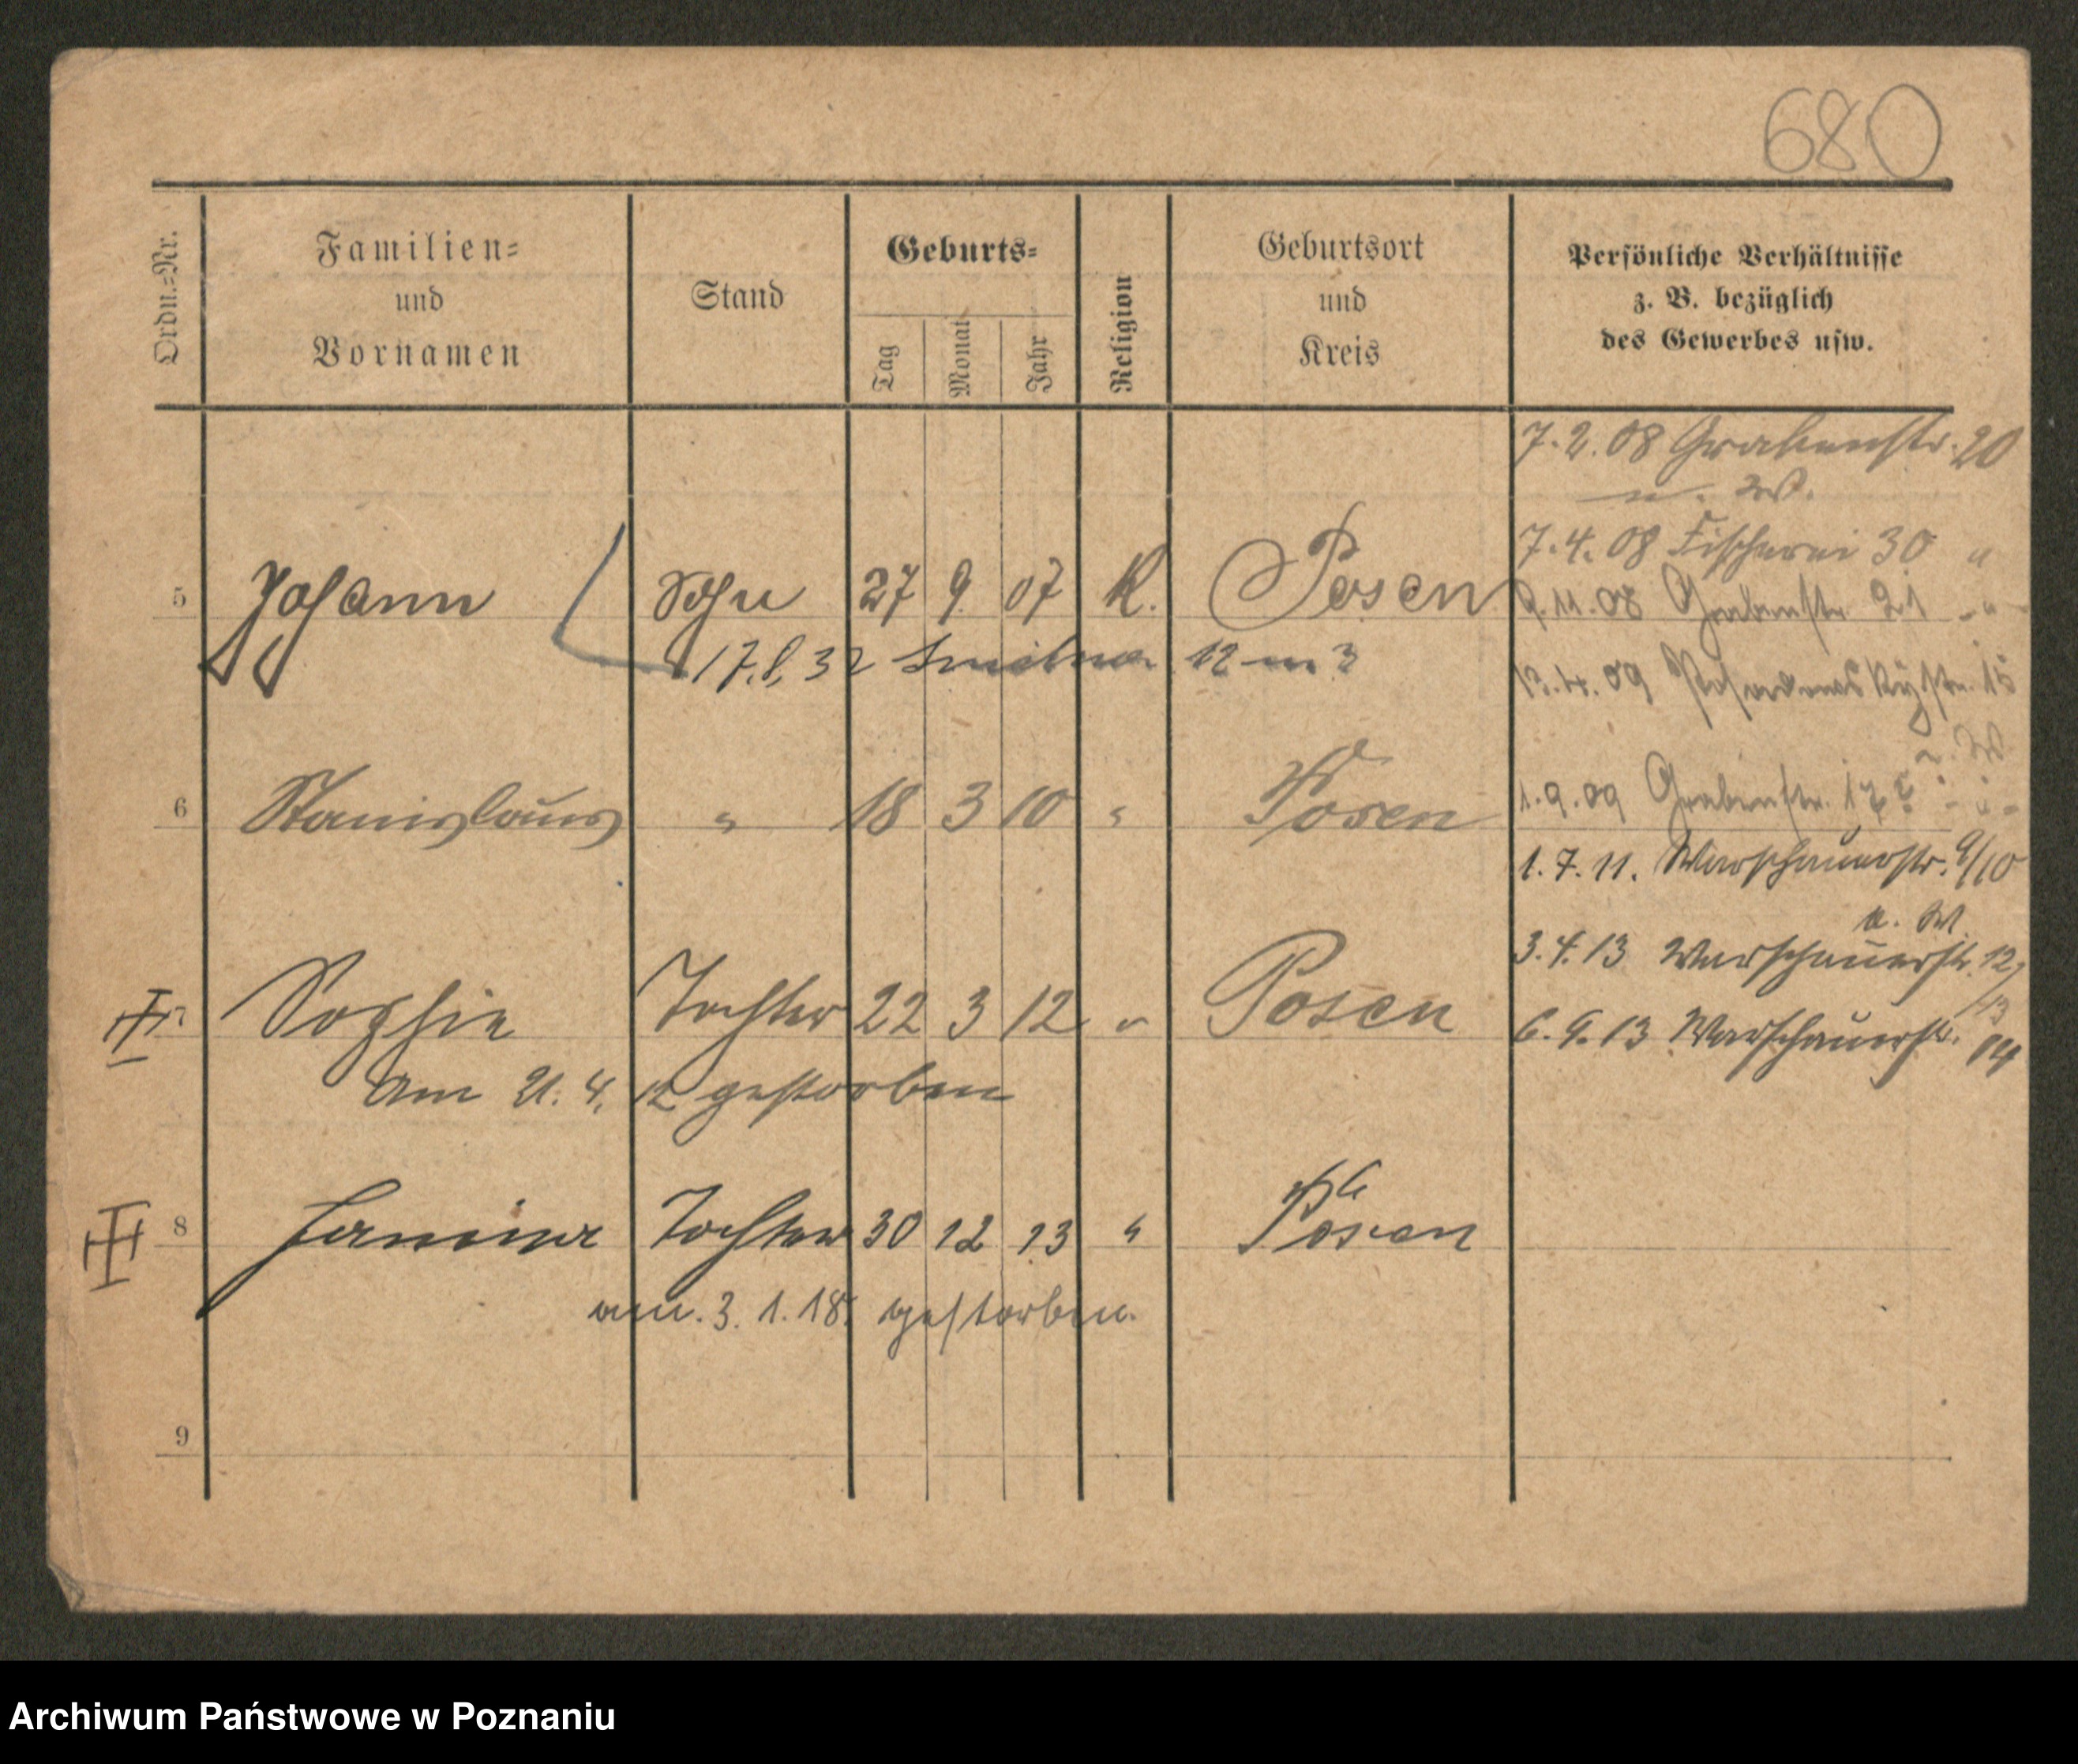 680
Ordn.=Nr.
Familien=
und
Vornamen
Stand
Geburts=
Tag
Monat
Jahr
Religion
Geburtsort
und
Kreis
Persönliche Verhältnisse
z. B. bezüglich
des Gewerbes usw.
7.2.08 Grabenstr. 20
u. W.
7.4.08 Fischerei 30 "
5 Johann Sohn 27 9. 07 K. Posen
9.11.08 Grabenstr. 21 - " -
17.8.32 12 m 3
13.4.09 15
u. W
6 Stanislaus " 18 3 10 " Posen
1.9.09 Grabenstr. - " -
1.7.11. Warschauerstr. 9/10
u. W.
3.4.13 Warschauerstr. 12/
13
7 Sophie Tochter 22 3 12 " Posen
6.9.13 Warschauerstr. 14
Am 21. 4. 12 gestorben
8 Janina Tochter 30 12 13 " Posen
am. 3. 1. 18. gestorben.
9
Archiwum Państwowe w Poznaniu